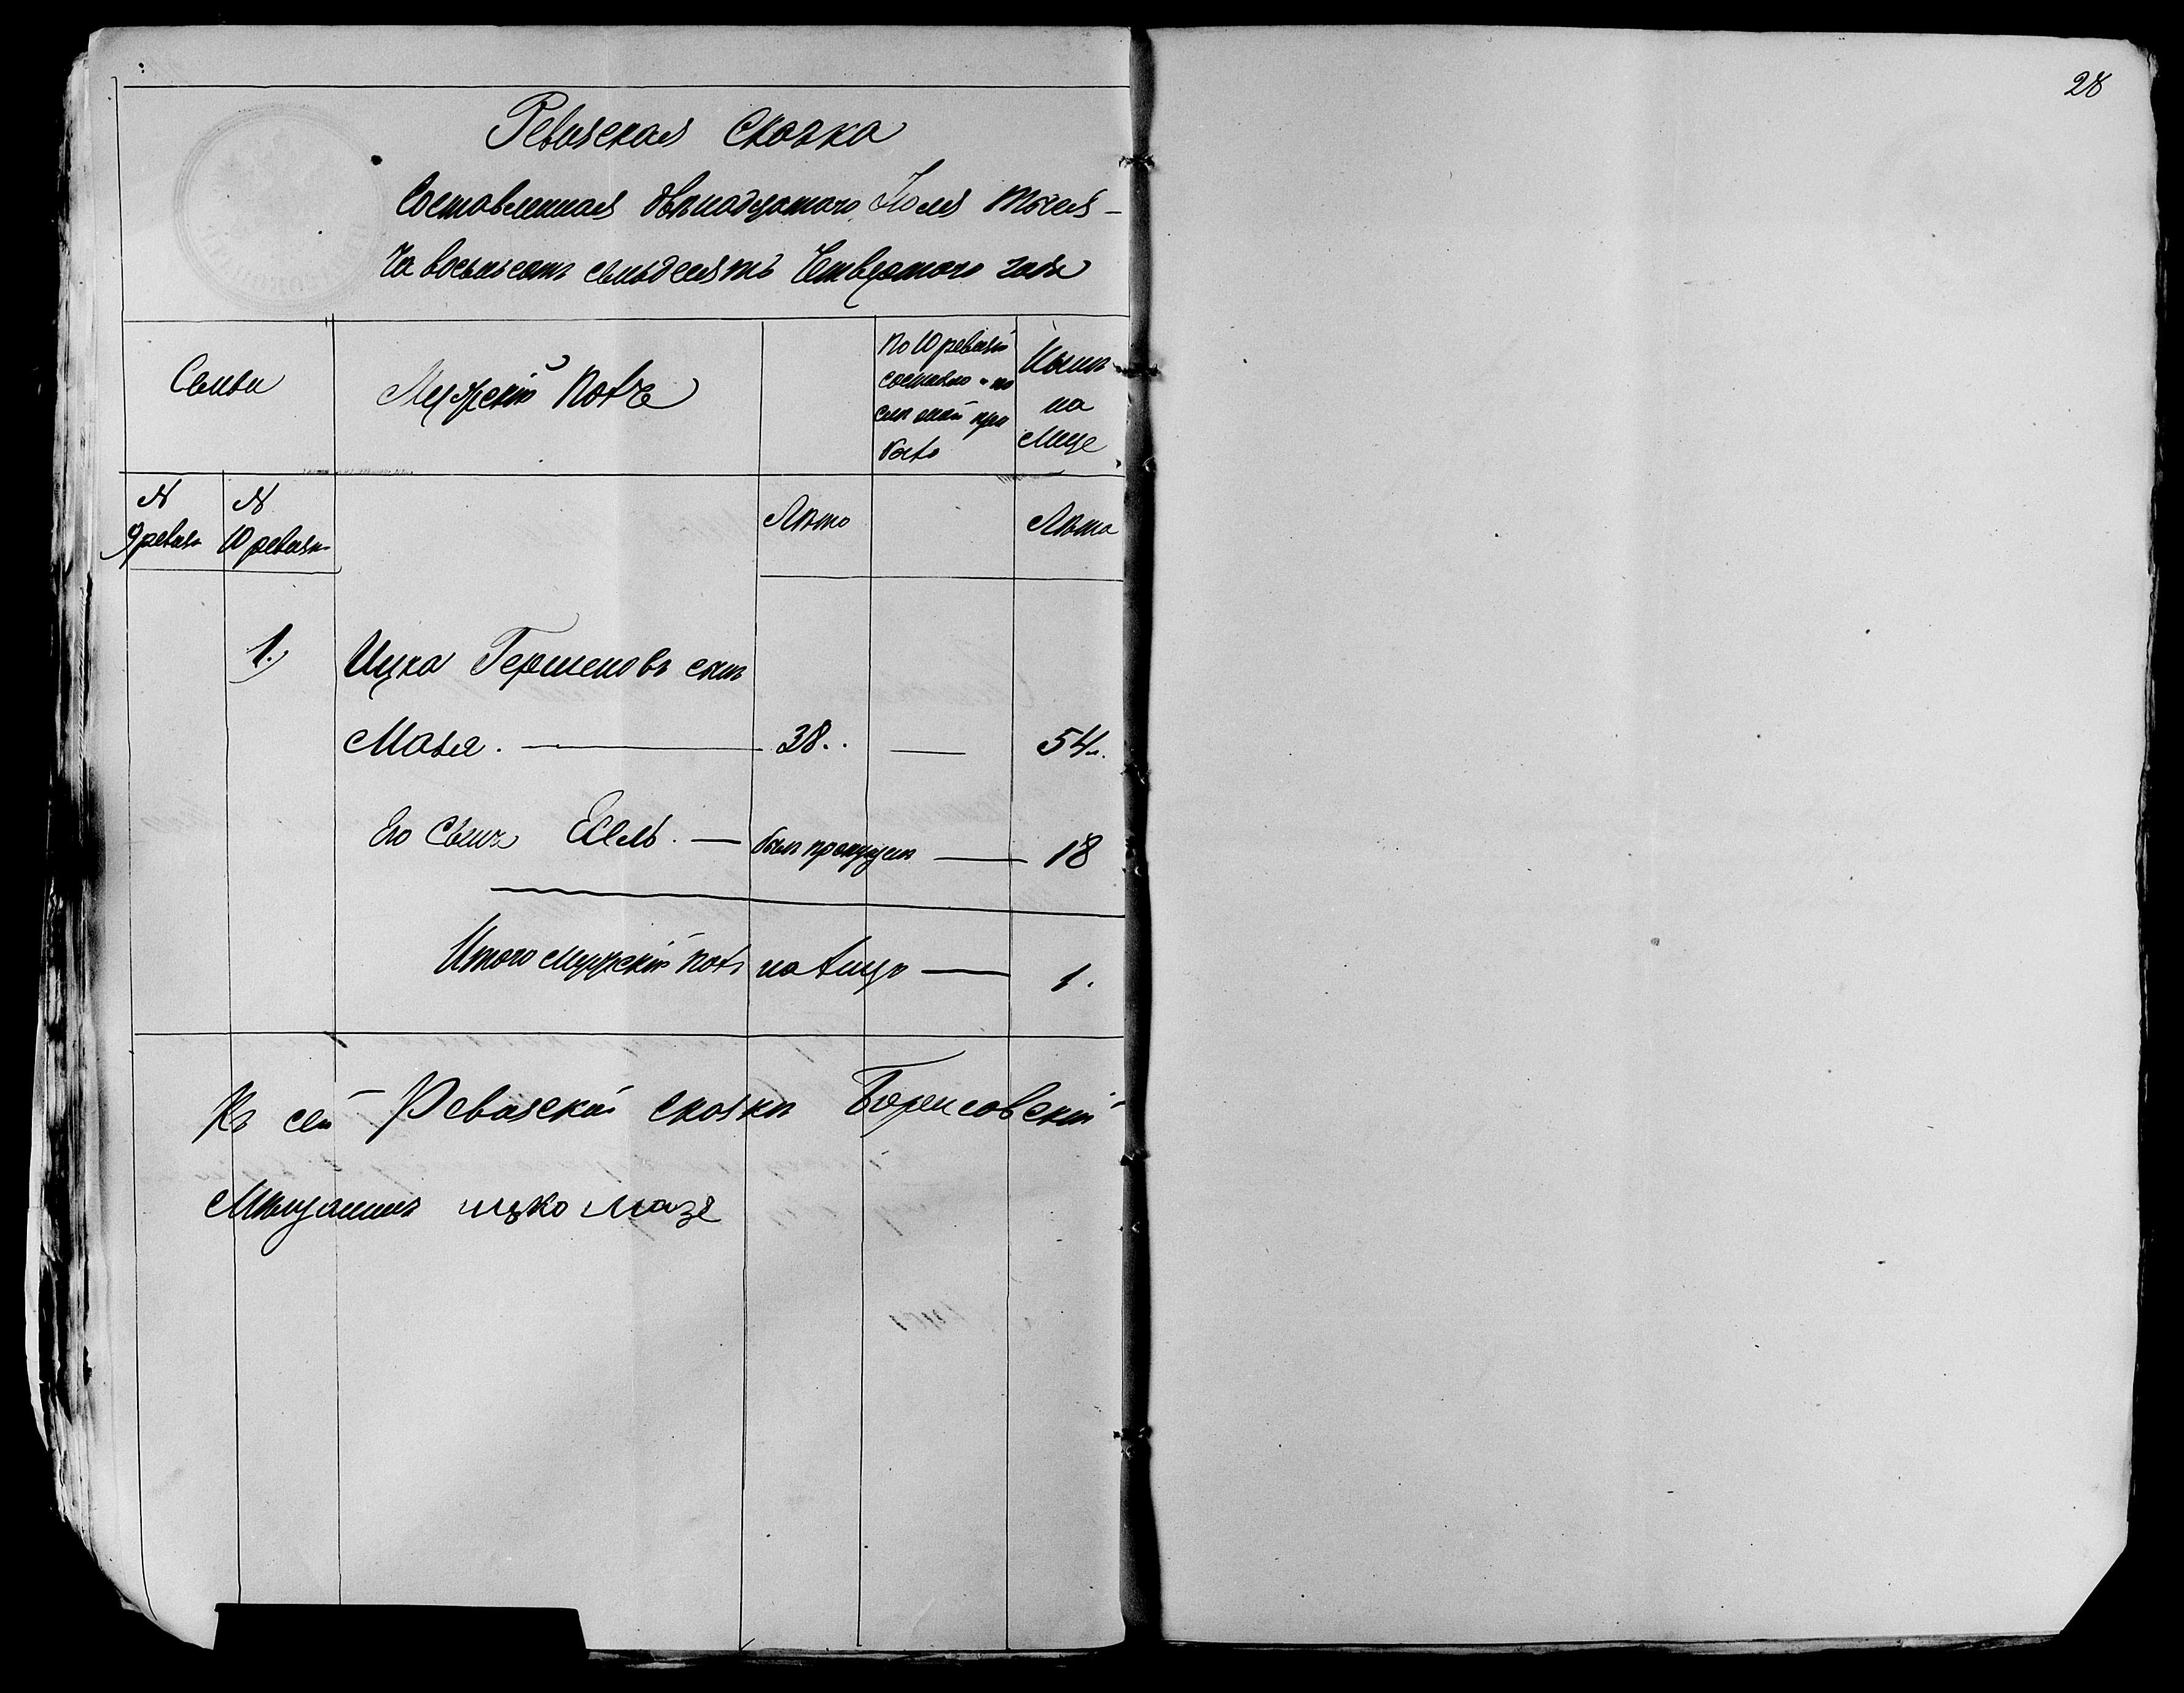 28
Ревизская Сказка
Составленная двѣнадцатаго Іюля тыся-
ча восемьсотъ семьдесятъ Четвертаго года
Семьи
Мужскій полъ
По 10 ревизіи
состояло и по
сл оной при
было
Нынѣ
на
лице
№
9 ревиз
№
10 ревизи
Лѣта
Лѣта
1.)
Ицка Гершеновъ сынъ
Мазя. — 38. — 54.
Его Сынъ Есель. — былъ пропущен — 18
Итого мужскій полъ на лицо — 1.
Къ сей Ревизской сказки Борисовскій
Мѣщанинъ ицко мазе